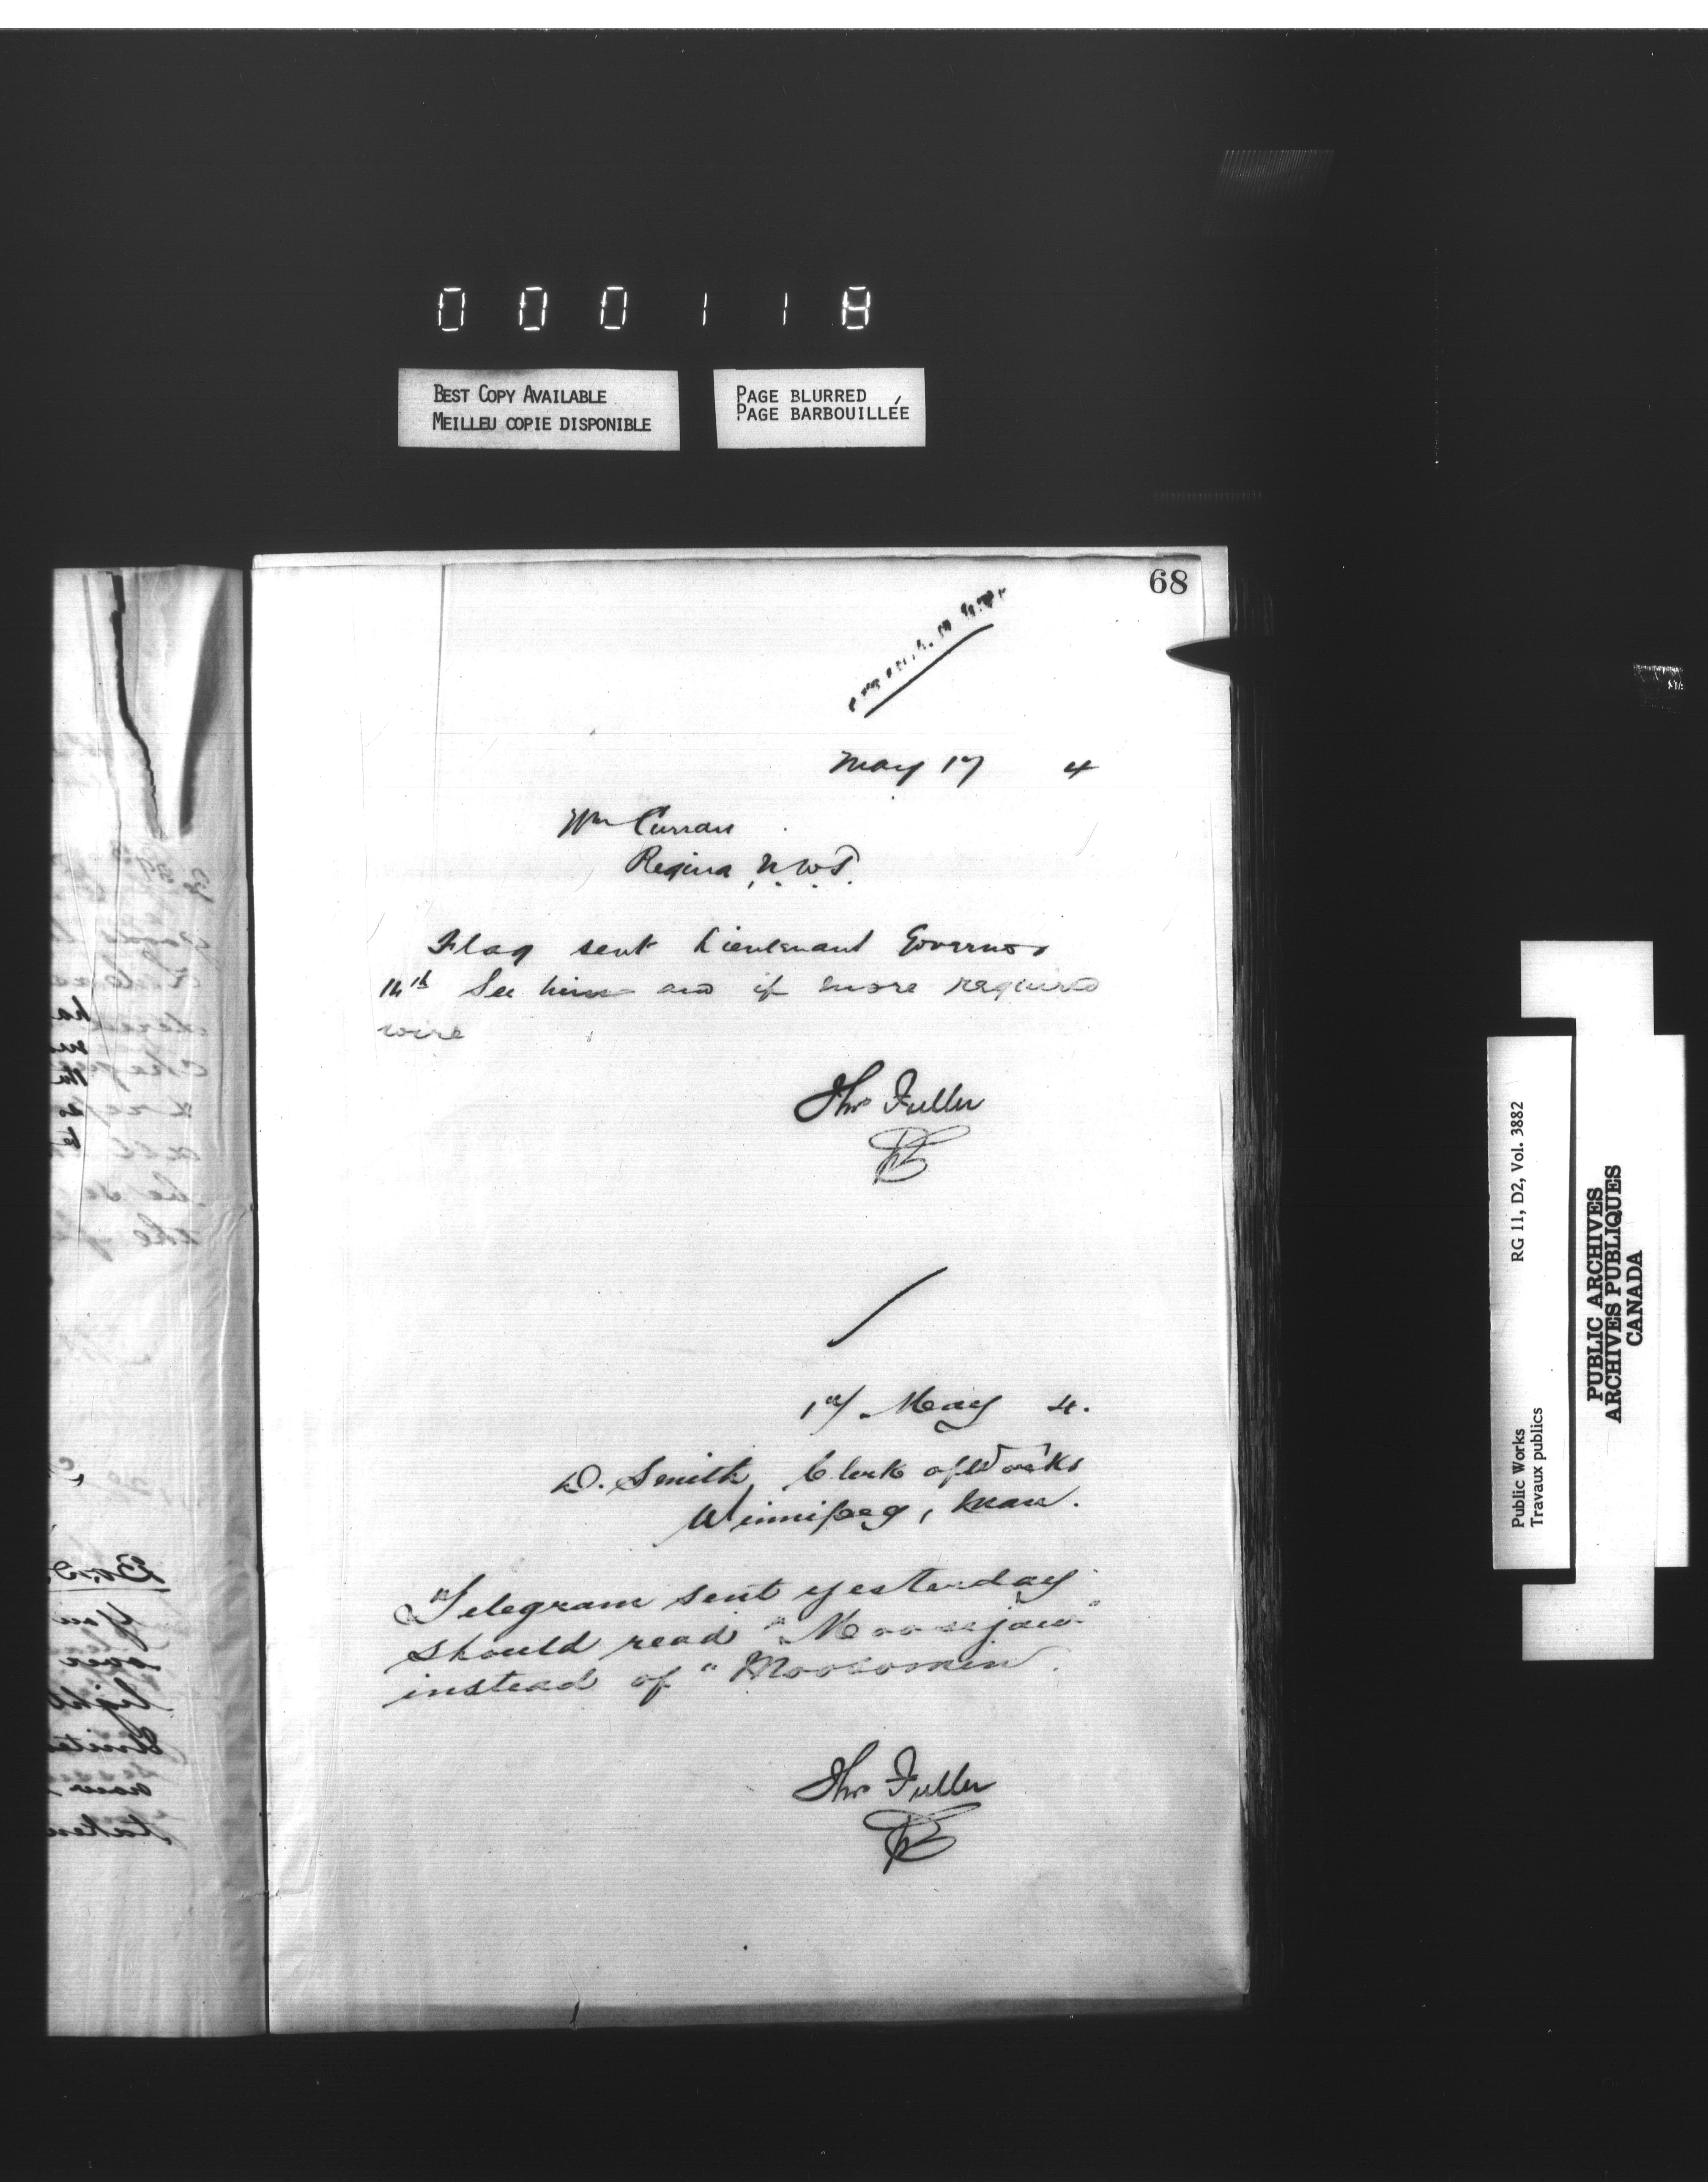 000118
BEST COPY AVAILABLE
MEILLEU COPIE DISPONIBLE
PAGE BLURRED
PAGE BARBOUILLÉE
68
May 17 4
Wm Curran
Regina, N.W.T.
Flag sent Lieutenant Governor
14th See him and if more required
wire
Thos Fuller
17 May 4.
D. Smith, Clerk of Works
Winnipeg, Man.
Telegram sent yesterday
should read "Moosejaw"
instead of "Moosomin.
Thos Fuller
Public Works
Travaux publics
RG 11, D2, Vol. 3882
PUBLIC ARCHIVES
ARCHIVES PUBLIQUES
CANADA